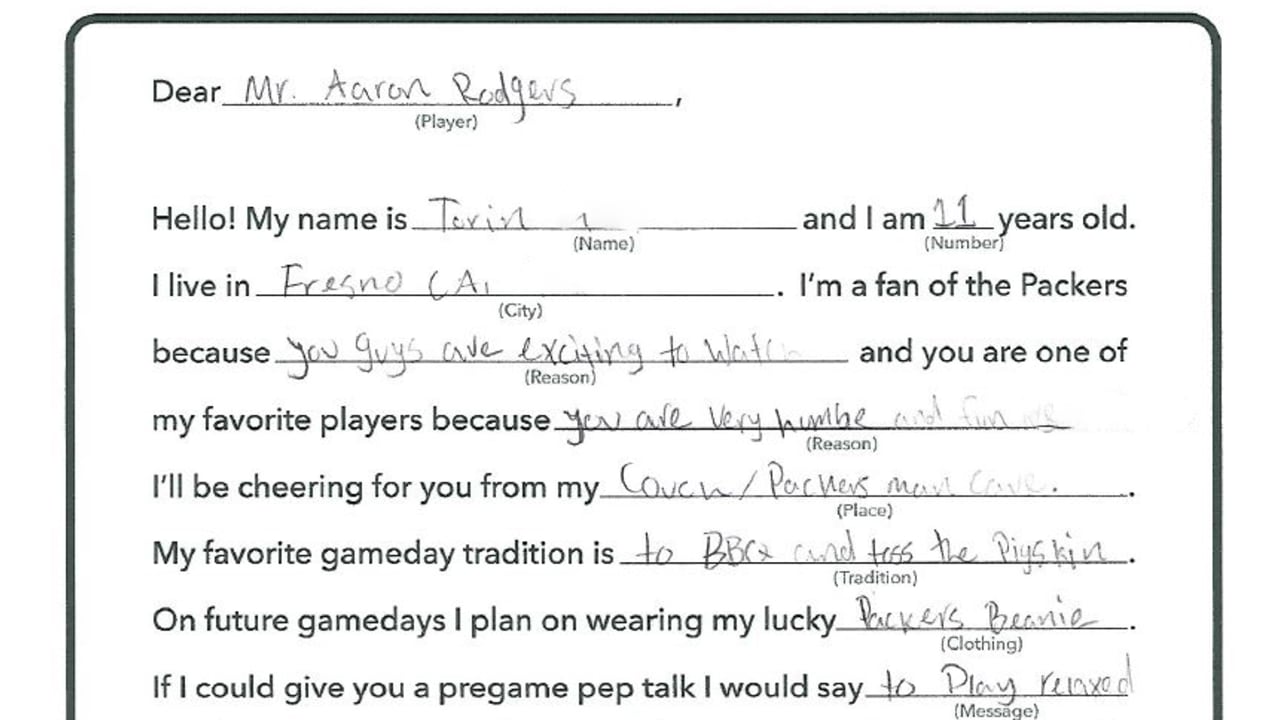 Dear Mr. Aaron Rodgers,
(Player)
Hello! My name is Torin and I am 11 years old.
(Name) (Number)
I live in Fresno CA. I'm a fan of the Packers
(City)
because you guys are exciting to watch and you are one of
(Reason)
my favorite players because you are very humbe and fun
(Reason)
I'll be cheering for you from my Couch/Packers man cave.
(Place)
My favorite gameday tradition is to BBQ and toss the Pigskin.
(Tradition)
On future gamedays I plan on wearing my lucky Packers Beanie.
(Clothing)
If I could give you a pregame pep talk I would say to Play relaxed
(Message)